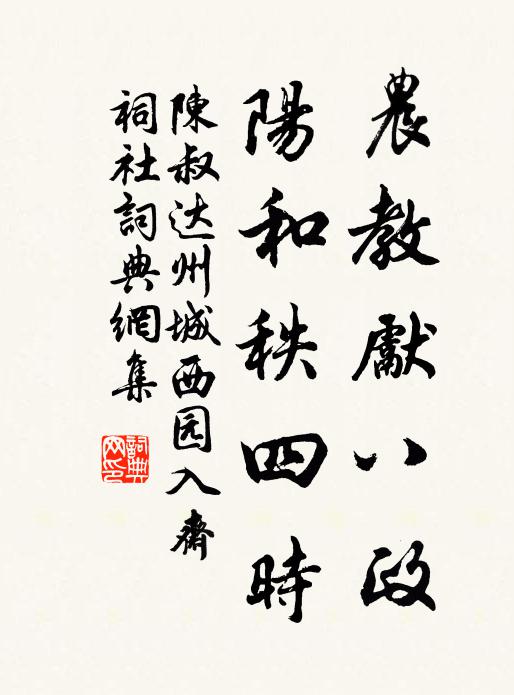 農教獻八政
陽和秩四時
陳叔达州城西园入齋
祠社詞典網集
詞典网印